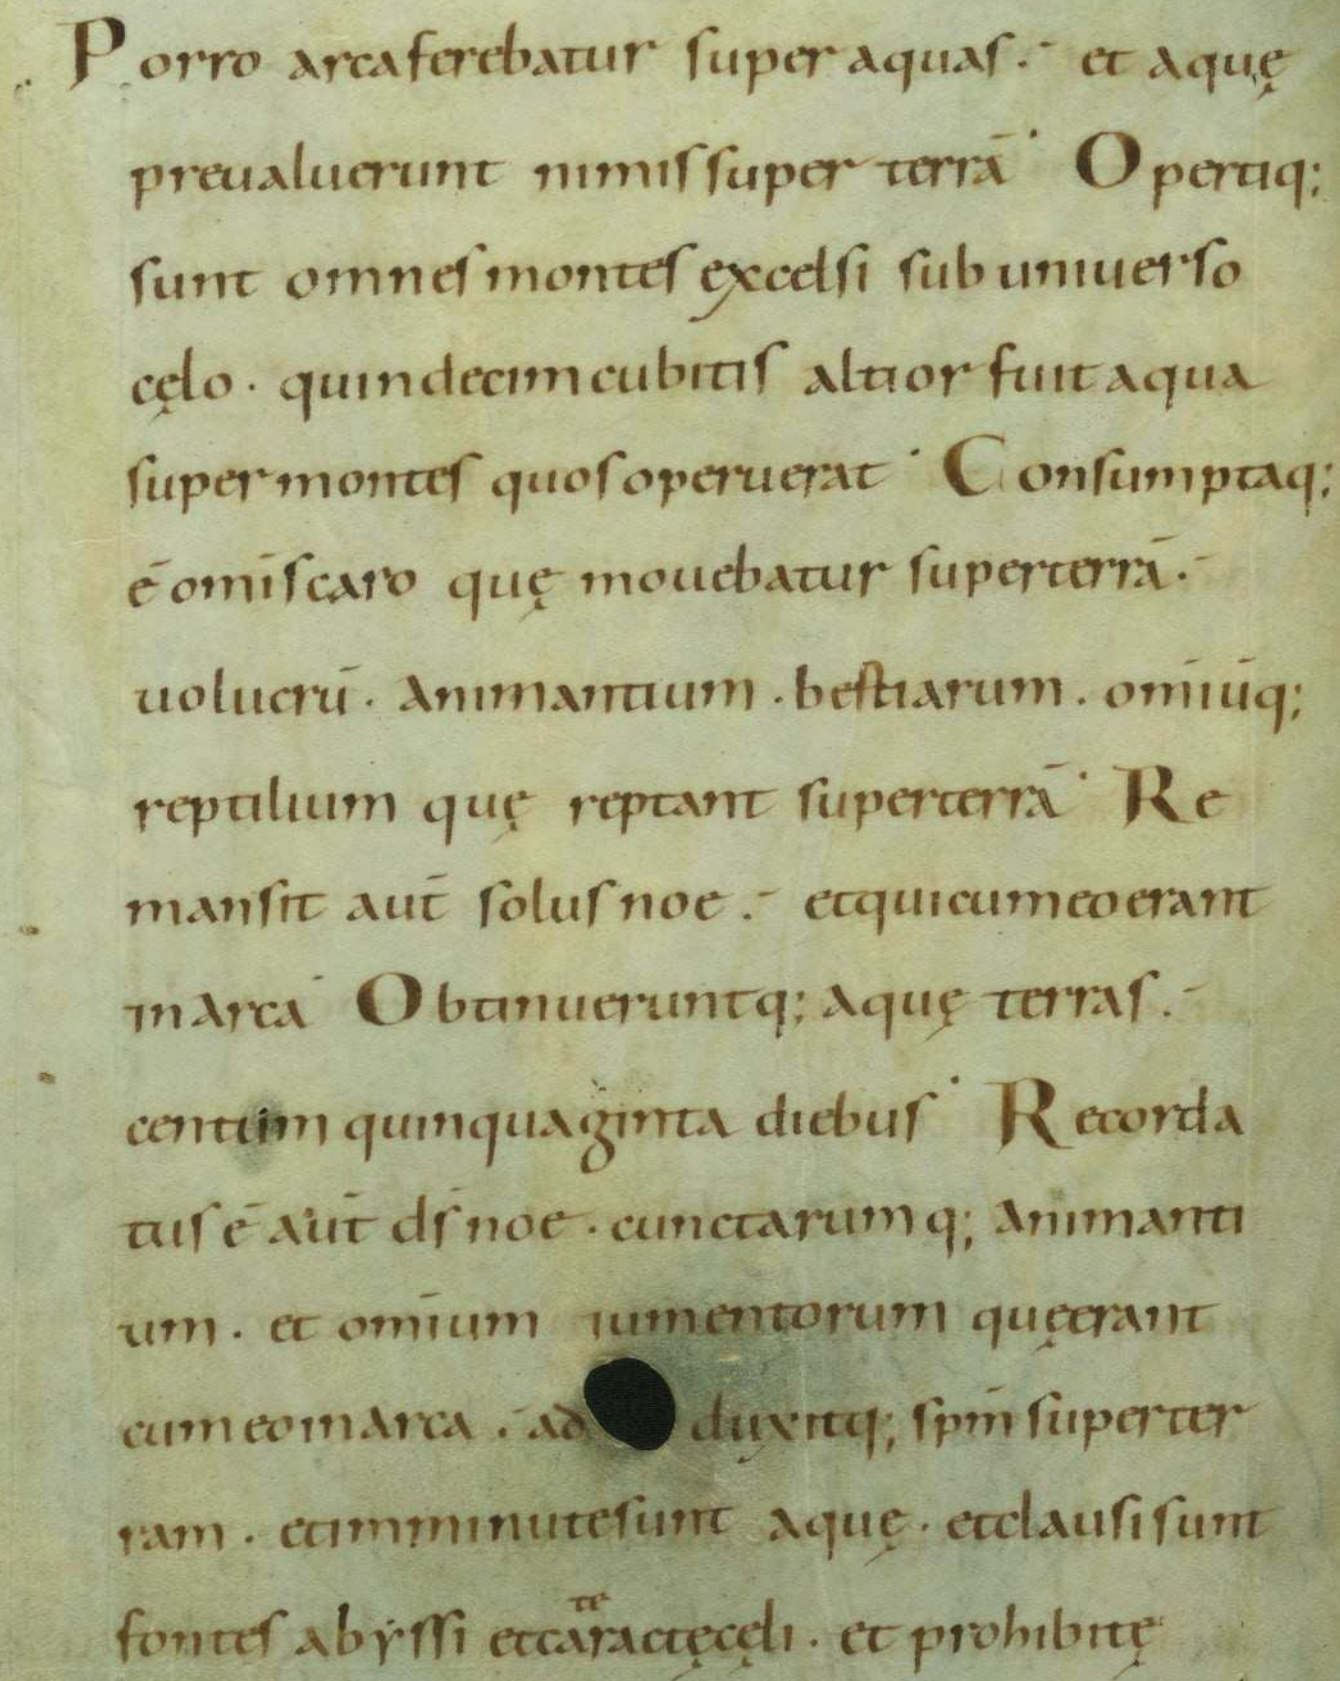 Porro arca ferebatur super aquas. et aquę
preualuerunt nimis super terrā Opertiq;
sunt omnes montes excelsi sub uniuerso
cęlo. quindecim cubitis altior fuit aqua
super montes quos operuerat Consumptaq;
ē om̄is caro quę mouebatur super terrā.
uolucrū. animantium. bestiarum. om̄iūq;
reptilium quę reptant super terrā Re
mansit aut̄ solus noe. et qui cum eo erant
in arca Obtinueruntq; aquę terras.
centum quinquaginta diebus Recorda
tus ē aut̄ ds̄ noe. cunctarumq; animanti
um. et om̄ium iumentorum quę erant
cum eo in arca. ad duxitq; spm̄ super ter
ram. et imminute sunt aquę. et clausi sunt
te
fontes abyssi et caractę cęli. et prohibitę